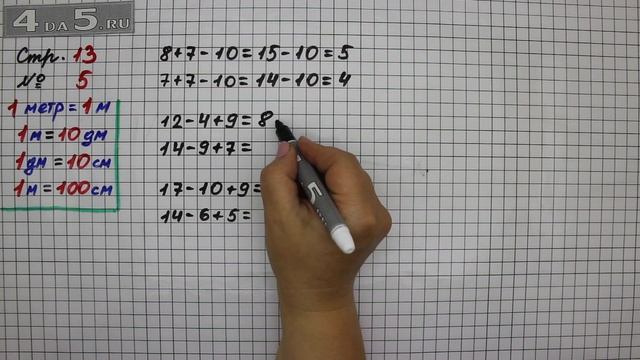 4 DA 5.RU
Стр. 13
№ 5
1 метр = 1 м
1 м = 10 дм
1 дм = 10 см
1 м = 100 см
8+7-10=15-10=5
7+7-10=14-10=4
12-4+9=8
14-9+7=
17-10+9=
14-6+5=
5